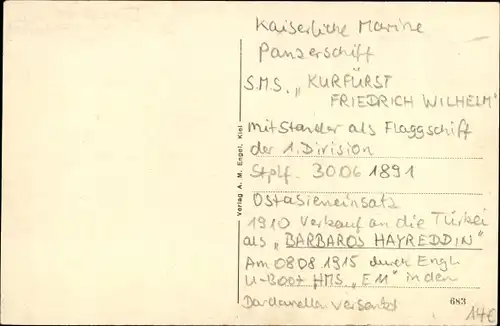 Kaiserliche Marine
Panzerschiff
S.M.S. „KURFÜRST
FRIEDRICH WILHELM"
mit Stander als Flaggschiff
der 1. Division
Stplf. 30.06 1891
Ostasieneinsatz
1910 Verkauf an die Türkei
als „BARBAROS HAYREDDIN"
Am 08.08 1915 durch Engl.
U-Boot HMS „E11" in den
Dardanellen versenkt
Verlag A. M. Engel, Kiel
683
14€